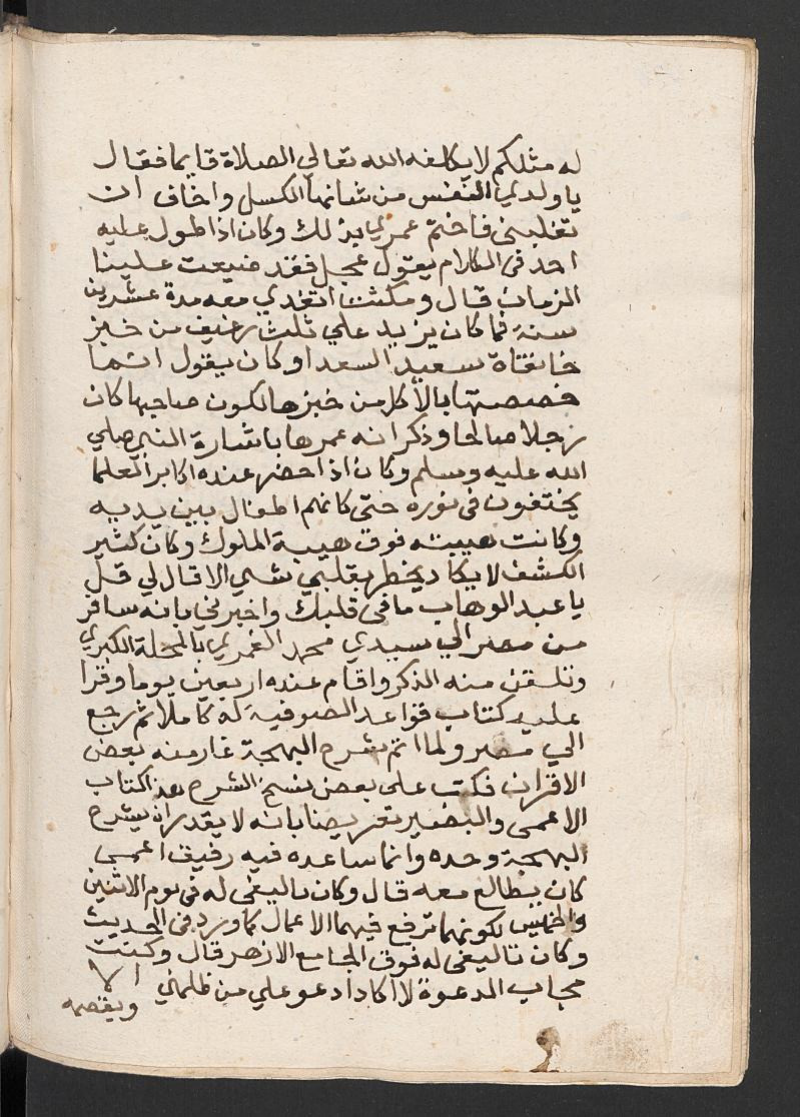 له مثلكم لا يكلفه الله تعالي الصلاة قايما فقال
يا ولدي النفس من شانها الكسل واخاف ان
تغلبني فاختم عمري بذلك وكان اذا طول عليه
احد في الكلام يقول عجل فقد ضيعت علينا
الزمان قال ومكثت اتغدي معه مدة عشرين
سنة فما كان يزيد علي ثلث رغيف من خبز
خانقاه سعيد السعدا وكان يقول انما
خصصتها بالاكل من خبزها لكون صاحبها كان
رجلا صالحا وذكر انه عمرها باشارة النبي صلي
الله عليه وسلم وكان اذا حضر عنده اكابر العلما
يختفون في نوره حتى كانهم اطفال بين يديه
وكانت هيبته فوق هيبة الملوك وكان كثير
الكشف لا يكاد يخطر بقلبي شي الا قال لي قل
يا عبد الوهاب ما في قلبك واخبرني بانه سافر
من مصر الي سيدي محمد الغمري بالمحلة الكبري
وتلقن منه الذكر واقام عنده اربعين يوما وقرا
عليه كتاب قواعد الصوفية له كاملا ثم رجع
الي مصر ولما اتم شرح البهجة غار منه بعض
الاقران فكتب على بعض نسخ الشرح هذا كتاب
الاعمى والبصير تعريضا بانه لا يقدر ان يشرح
البهجة وحده وانما ساعده فيه رفيق اعمى
كان يطالع معه قال وكان تاليفي له في يوم الاثنين
والخميس لكونهما ترفع فيهما الاعمال كما ورد في الحديث
وكان تاليفي له فوق الجامع الازهر قال وكنت
مجاب الدعوة لا اكاد ادعو علي من ظلمني الا